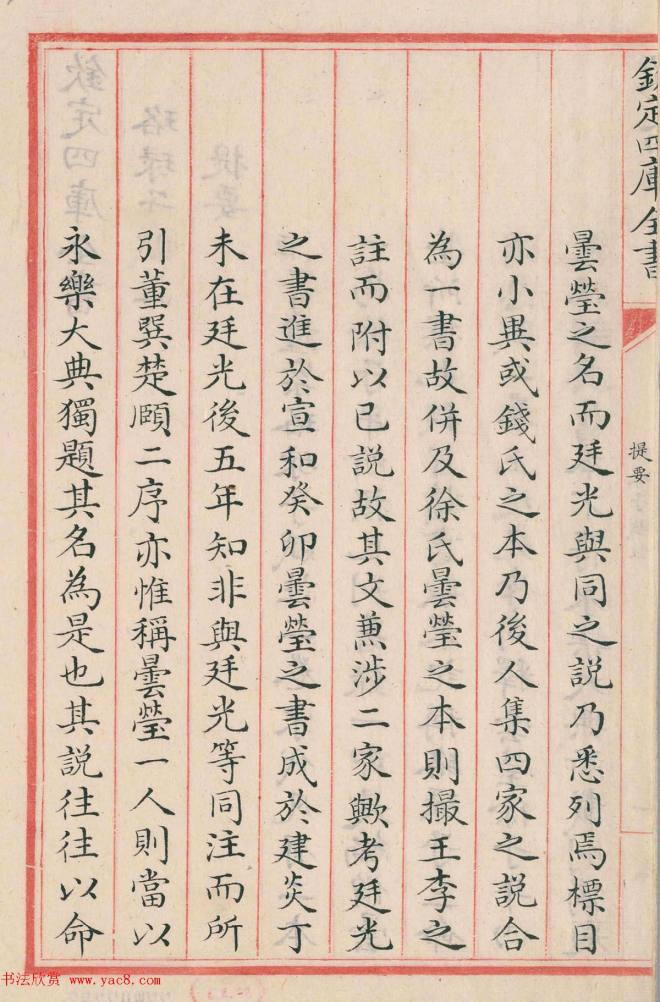 欽定四庫全書
提要
曇瑩之名而廷光與同之說乃悉列焉標目
亦小異或錢氏之本乃後人集四家之說合
為一書故併及徐氏曇瑩之本則撮王李之
註而附以已説故其文兼涉二家歟考廷光
之書進於宣和癸卯曇瑩之書成於建炎丁
未在廷光後五年知非與廷光等同注而所
引董巽楚頤二序亦惟稱曇瑩一人則當以
永樂大典獨題其名為是也其説往往以命
书法欣赏 www.yac8.com